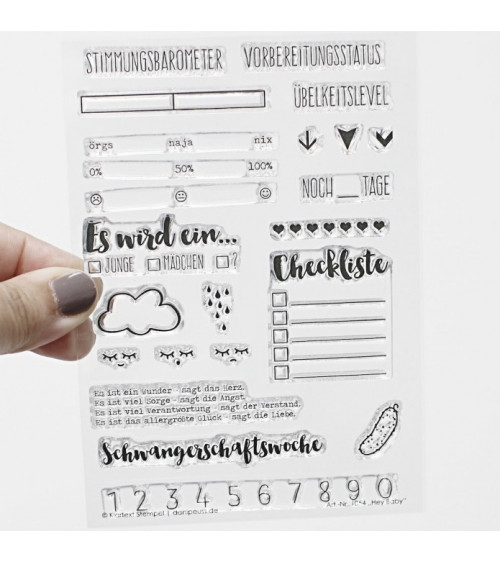 STIMMUNGSBAROMETER VORBEREITUNGSSTATUS
ÜBELKEITSLEVEL
örgs naja nix
0% 50% 100%
NOCH __ TAGE
Es wird ein...
JUNGE MÄDCHEN ?
Checkliste
Es ist ein Wunder - sagt das Herz.
Es ist viel Sorge - sagt die Angst.
Es ist viel Verantwortung - sagt der Verstand.
Es ist das allergrößte Glück - sagt die Liebe.
Schwangerschaftswoche
1 2 3 4 5 6 7 8 9 0
Stempel | danipeuss.de "Hey Baby"